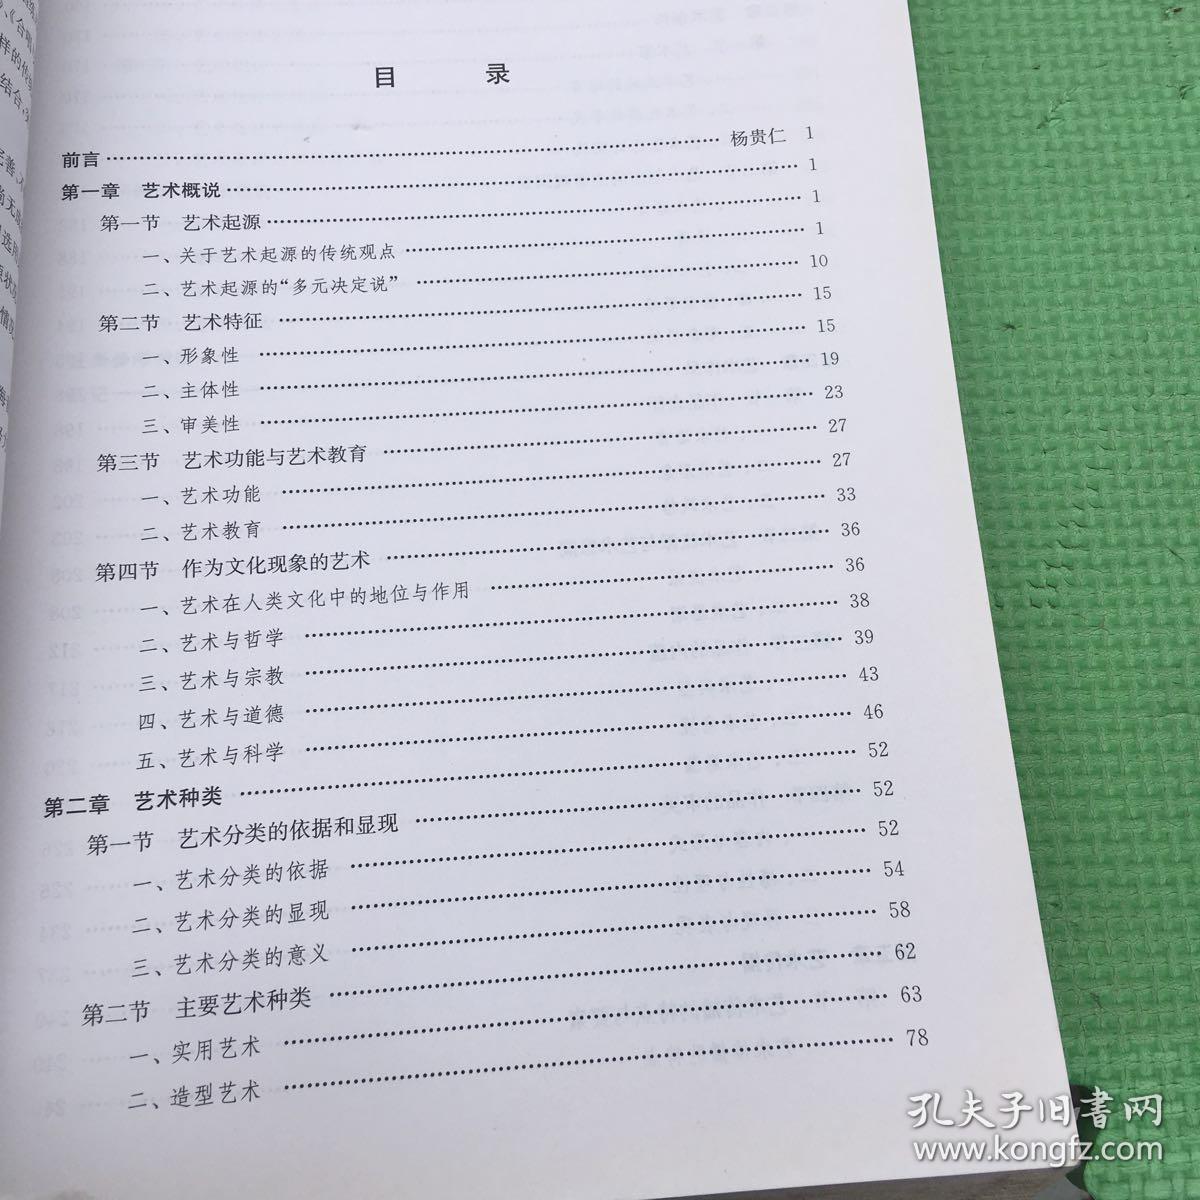 目 录
前言……杨贵仁 1
第一章 艺术概说……1
第一节 艺术起源……1
一、关于艺术起源的传统观点……1
二、艺术起源的“多元决定说”……10
第二节 艺术特征……15
一、形象性……15
二、主体性……19
三、审美性……23
第三节 艺术功能与艺术教育……27
一、艺术功能……27
二、艺术教育……33
第四节 作为文化现象的艺术……36
一、艺术在人类文化中的地位与作用……36
二、艺术与哲学……38
三、艺术与宗教……39
四、艺术与道德……43
五、艺术与科学……46
第二章 艺术种类……52
第一节 艺术分类的依据和显现……52
一、艺术分类的依据……52
二、艺术分类的显现……54
三、艺术分类的意义……58
第二节 主要艺术种类……62
一、实用艺术……63
二、造型艺术……78
孔夫子旧书网
www.kongfz.com